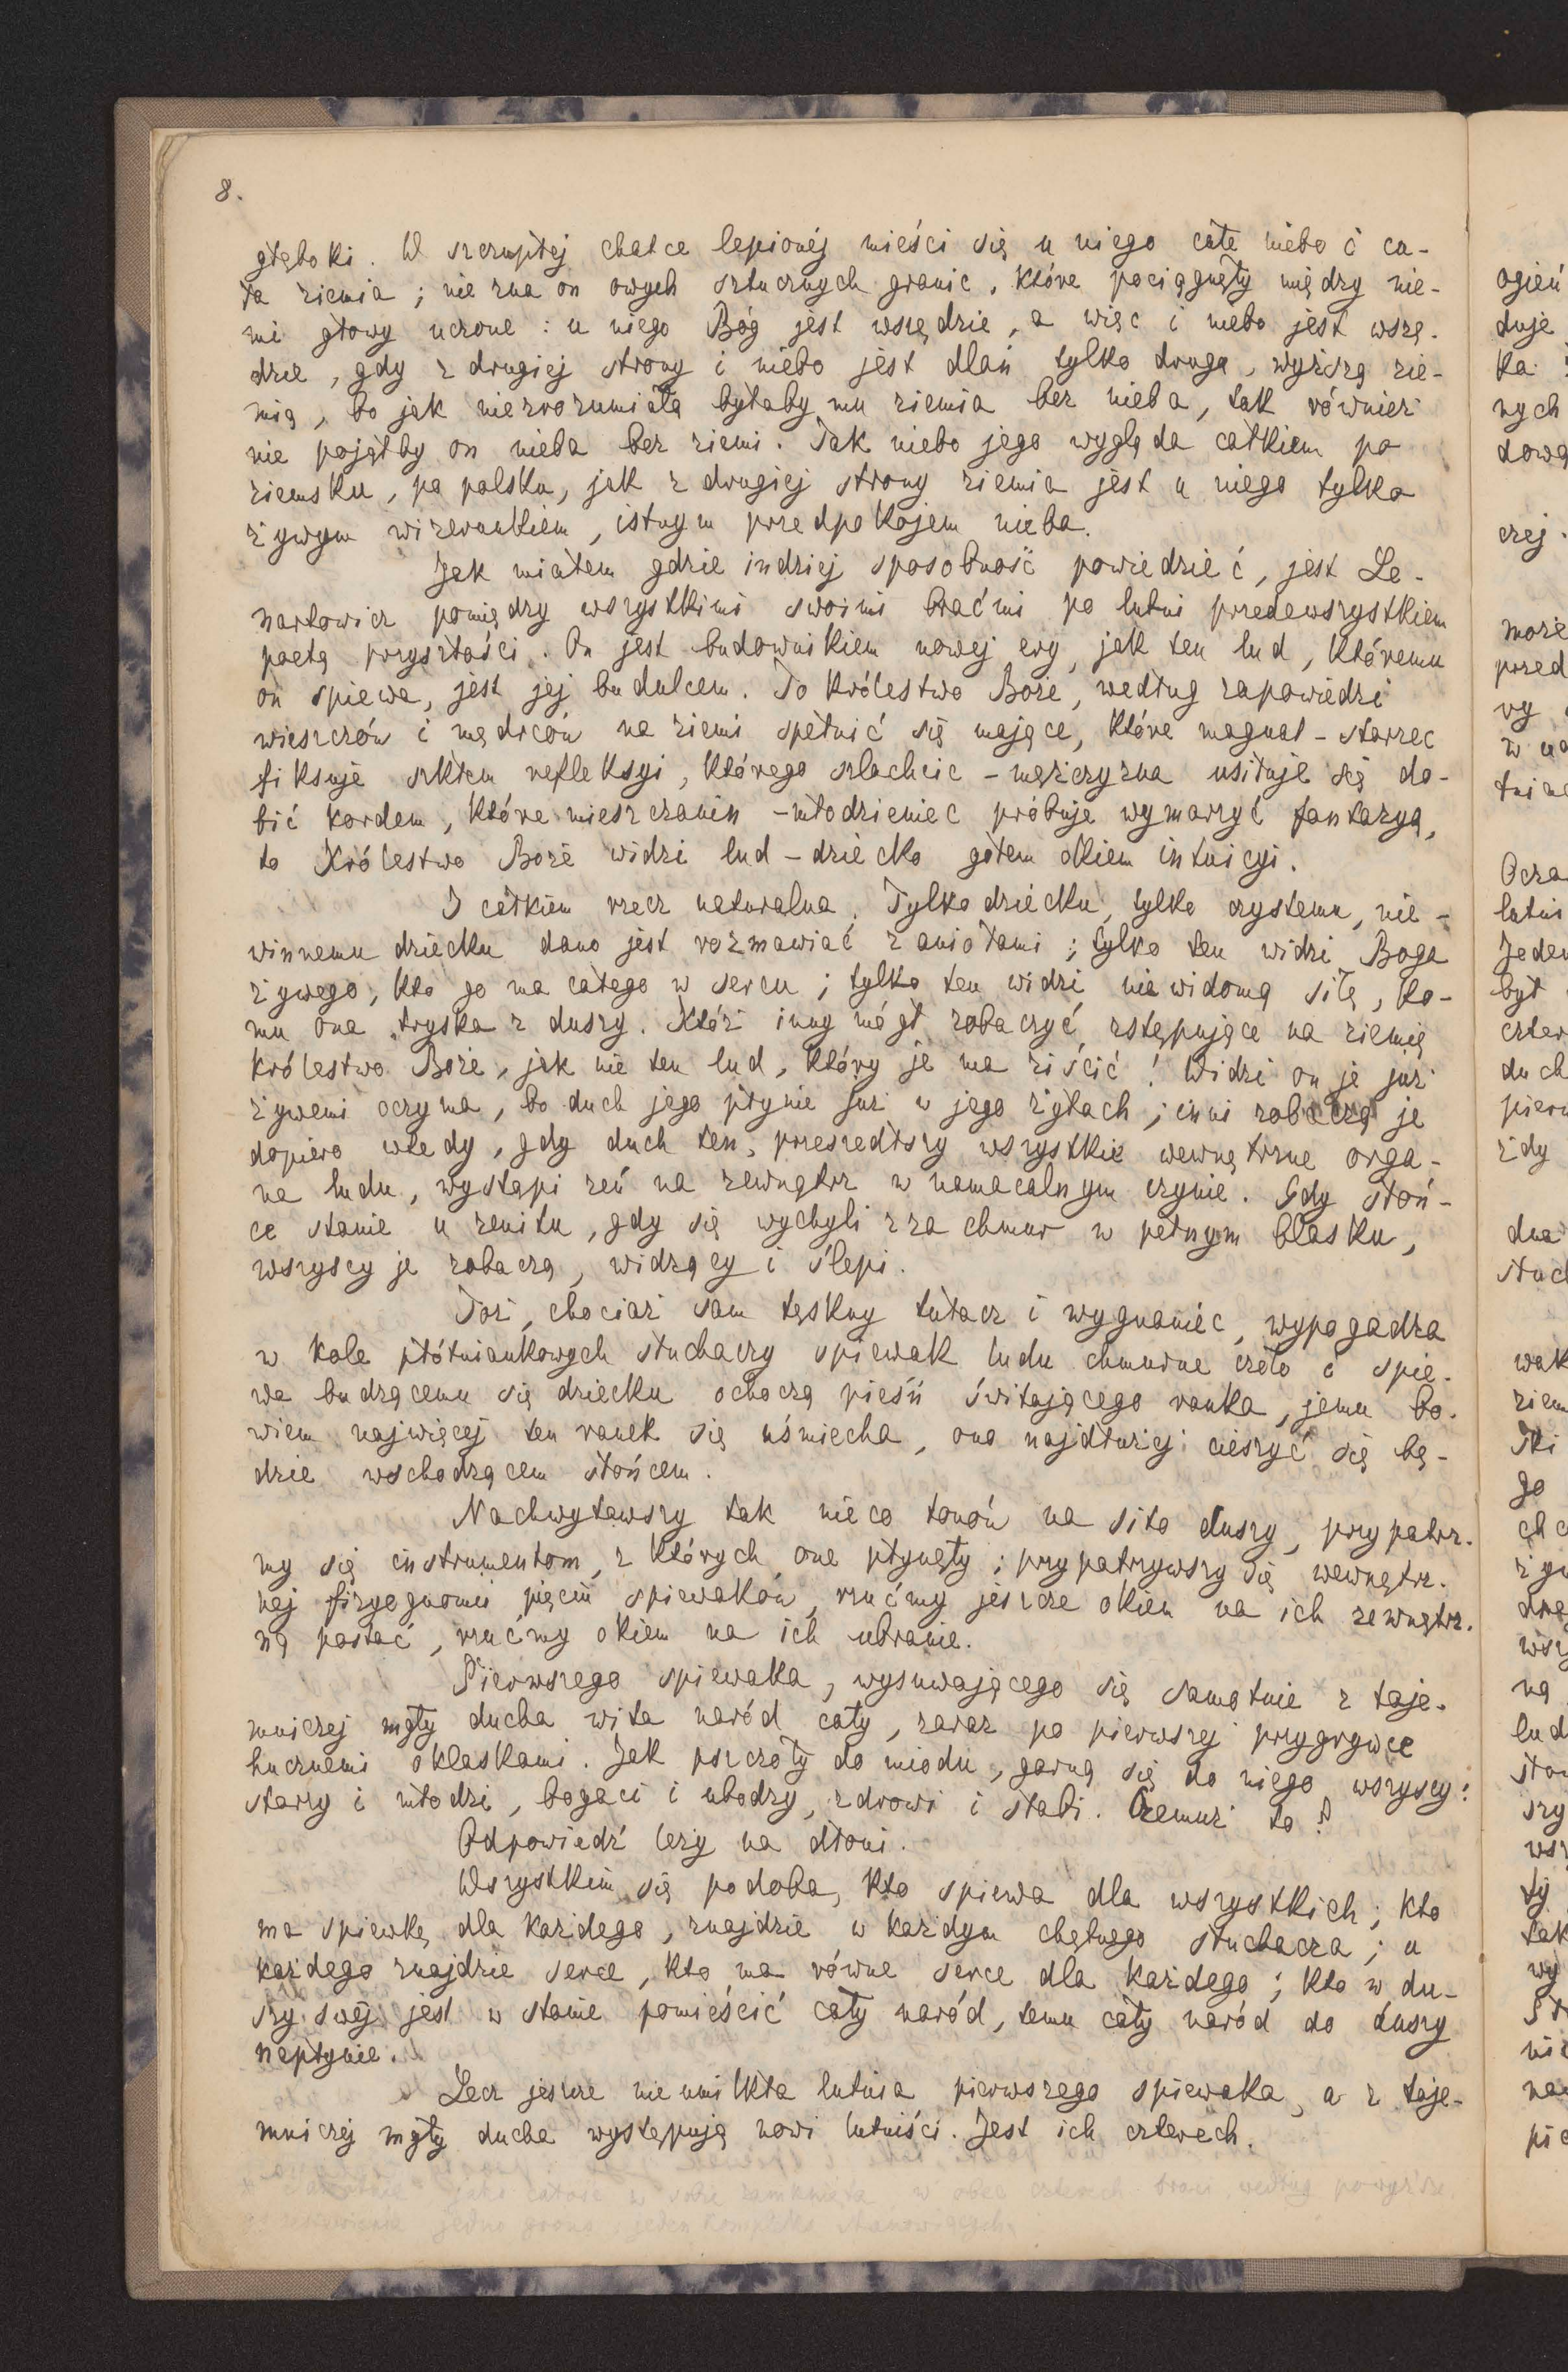 8.
głęboki. W szczupłej chatce lepionéj mieści się u niego całe niebo i ca-
ła ziemia; nie zna on owych sztucznych granic, które pociągnęły między nie-
mi głowy uczone: u niego Bóg jest wszędzie, a więc i niebo jest wszę-
dzie, gdy z drugiej strony i niebo jest dlań tylko drugą, wyższą zie-
mią, bo jak niezrozumiałą byłaby mu ziemia bez nieba, tak również
nie pojąłby on nieba bez ziemi. Tak niebo jego wygląda całkiem po
ziemsku, po polsku, jak z drugiej strony ziemia jest u niego tylko
żywym wizerunkiem, istnym przedpokojem nieba.
Jak miałem gdzie indziej sposobność powiedzieć, jest Le-
nartowicz pomiędzy wszystkimi swoimi braćmi po lutni przedewszystkiem
poetą przyszłości. On jest budownikiem nowej ery, jak ten lud, któremu
on spiewa, jest jej budulcem. To królestwo Boże, według zapowiedzi
wieszczów i mędrców na ziemi spełnić się mające, które magnat-starzec
fiksuje szkłem refleksyi, którego szlachcic-mężczyzna usiłuje się do-
bić kordem, które mieszczanin-młodzieniec próbuje wymarzyć fantazyą,
to Królestwo Boże widzi lud-dziecko gołem okiem intuicyi.
I całkiem rzecz naturalna. Tylko dziecku, tylko czystemu, nie-
winnemu dziecku dano jest rozmawiać z aniołami; tylko ten widzi Boga
żywego, kto go ma całego w sercu; tylko ten widzi niewidomą siłę, ko-
mu ona tryska z duszy. Któż inny mógł zobaczyć zstępujące na ziemię
królestwo Boże, jak nie ten lud, który je ma ziścić! Widzi on je już
żywemi oczyma, bo duch jego płynie już w jego żyłach; inni zobaczą je
dopiero wtedy, gdy duch ten, przeszedłszy wszystkie wewnętrzne orga-
na ludu, wystąpi zeń na zewnątrz w namacalnym czynie. Gdy słoń-
ce stanie u zenitu, gdy się wychyli zza chmur w pełnym blasku,
wszyscy je zobaczą, widzący i ślepi.
Toż, chociaż sam tęskny tułacz i wygnaniec, wypogadza
w kole płótniankowych słuchaczy spiewak ludu chmurne czoło i spie-
wa budzącemu się dziecku ochoczą pieśń świtającego ranka, jemu bo-
wiem najwięcej ten ranek się uśmiecha, ono najdłużej cieszyć się bę-
dzie wschodzącem słońcem.
Nachwytawszy tak nieco tonów na sito duszy, przypatrz-
my się instrumentom, z których one płynęły; przypatrzywszy się wewnętrz-
nej fizyognomii pięciu spiewaków, rzućmy jeszcze okiem na ich zewnętrz-
ną postać, rzućmy okiem na ich ubranie.
Pierwszego spiewaka, wysuwającego się samotnie z taje-
mniczej mgły ducha wita naród cały, zaraz po pierwszej przygrywce
hucznemi oklaskami. Jak pszczoły do miodu, garną się do niego wszyscy:
starzy i młodzi, bogaci i ubodzy, zdrowi i słabi. Czemuż to?
Odpowiedź leży na dłoni.
Wszystkim się podoba, kto spiewa dla wszystkich; kto
ma spiewkę dla każdego, znajdzie w każdym chętnego słuchacza; u
każdego znajdzie serce, kto ma równe serce dla każdego; kto w du-
szy swej jest w stanie pomieścić cały naród, temu cały naród do duszy
napłynie.
Lecz jeszcze nie umilkła lutnia pierwszego spiewaka, a z taje-
mniczej mgły ducha występują nowi lutniści. Jest ich czterech.